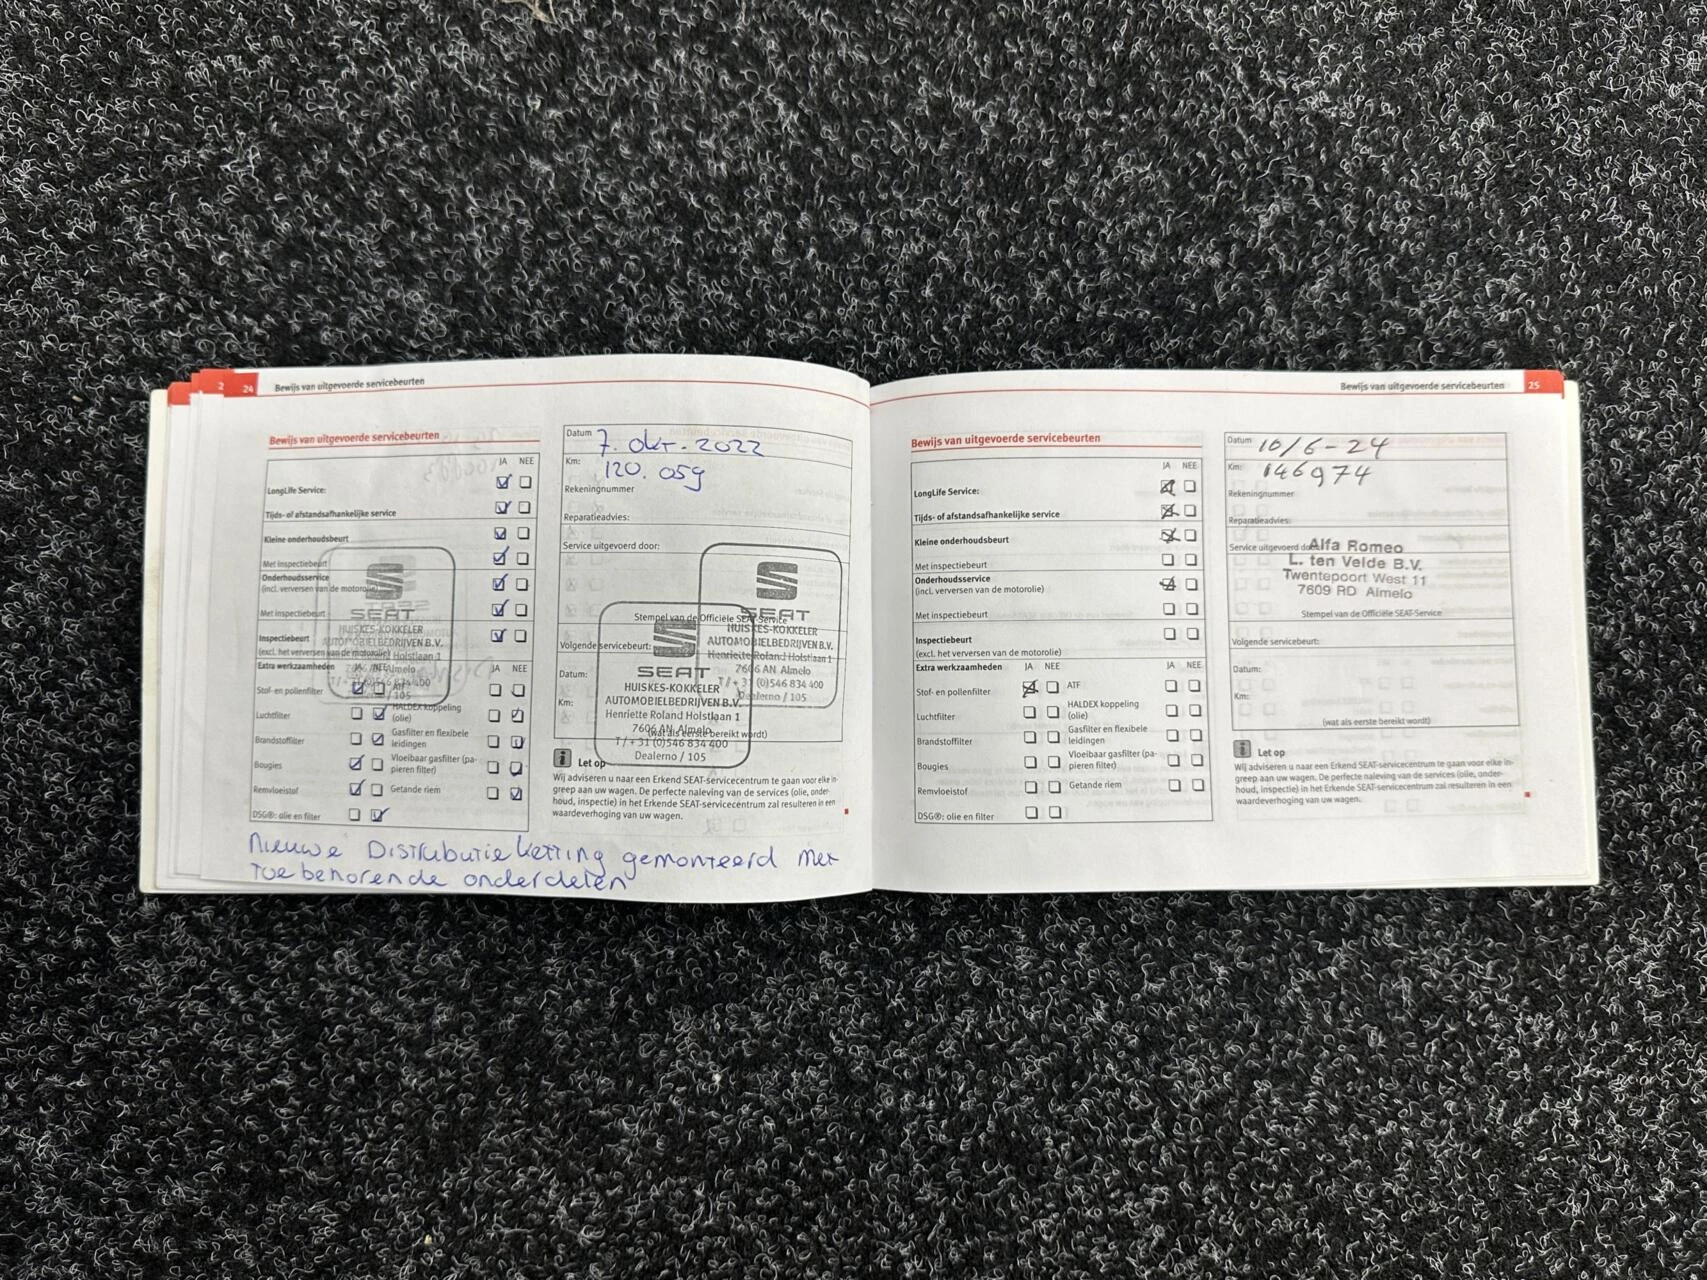 2
24
Bewijs van uitgevoerde servicebeurten
Bewijs van uitgevoerde servicebeurten
JA NEE
LongLife Service:
Tijds- of afstandsafhankelijke service
Kleine onderhoudsbeurt
Met inspectiebeurt
Onderhoudsservice
(incl. verversen van de motorolie)
Met inspectiebeurt
Inspectiebeurt
(excl. het verversen van de motorolie)
Extra werkzaamheden JA NEE JA NEE
Stof- en pollenfilter ATF
Luchtfilter HALDEX koppeling
(olie)
Brandstoffilter Gasfilter en flexibele
leidingen
Bougies Vloeibaar gasfilter (pa-
pieren filter)
Remvloeistof Getande riem
DSG®: olie en filter
SEAT
HUISKES-KOKKELER
AUTOMOBIELBEDRIJVEN B.V.
Nieuwe Distributie ketting gemonteerd met
toebehorende onderdelen
Datum 7. okt. 2022
Km: 120.059
Rekeningnummer
Reparatieadvies:
Service uitgevoerd door:
Stempel van de Officiële SEAT-Service
Volgende servicebeurt:
Datum:
Km:
(wat als eerste bereikt wordt)
SEAT
HUISKES-KOKKELER
AUTOMOBIELBEDRIJVEN B.V.
Henriette Roland Holstlaan 1
7606 AN Almelo
T / + 31 (0)546 834 400
Dealerno / 105
SEAT
HUISKES-KOKKELER
AUTOMOBIELBEDRIJVEN B.V.
Henriette Roland Holstlaan 1
7606 AN Almelo
T / + 31 (0)546 834 400
Dealerno / 105
Let op
Wij adviseren u naar een Erkend SEAT-servicecentrum te gaan voor elke in-
greep aan uw wagen. De perfecte naleving van de services (olie, onder-
houd, inspectie) in het Erkende SEAT-servicecentrum zal resulteren in een
waardeverhoging van uw wagen.
Bewijs van uitgevoerde servicebeurten
25
Bewijs van uitgevoerde servicebeurten
JA NEE
LongLife Service:
Tijds- of afstandsafhankelijke service
Kleine onderhoudsbeurt
Met inspectiebeurt
Onderhoudsservice
(incl. verversen van de motorolie)
Met inspectiebeurt
Inspectiebeurt
(excl. het verversen van de motorolie)
Extra werkzaamheden JA NEE JA NEE
Stof- en pollenfilter ATF
Luchtfilter HALDEX koppeling
(olie)
Brandstoffilter Gasfilter en flexibele
leidingen
Bougies Vloeibaar gasfilter (pa-
pieren filter)
Remvloeistof Getande riem
DSG®: olie en filter
Datum 10/6-24
Km: 146974
Rekeningnummer
Reparatieadvies:
Service uitgevoerd
Alfa Romeo
L. ten Velde B.V.
Twentepoort West 11
7609 RD Almelo
Stempel van de Officiële SEAT-Service
Volgende servicebeurt:
Datum:
Km:
(wat als eerste bereikt wordt)
Let op
Wij adviseren u naar een Erkend SEAT-servicecentrum te gaan voor elke in-
greep aan uw wagen. De perfecte naleving van de services (olie, onder-
houd, inspectie) in het Erkende SEAT-servicecentrum zal resulteren in een
waardeverhoging van uw wagen.